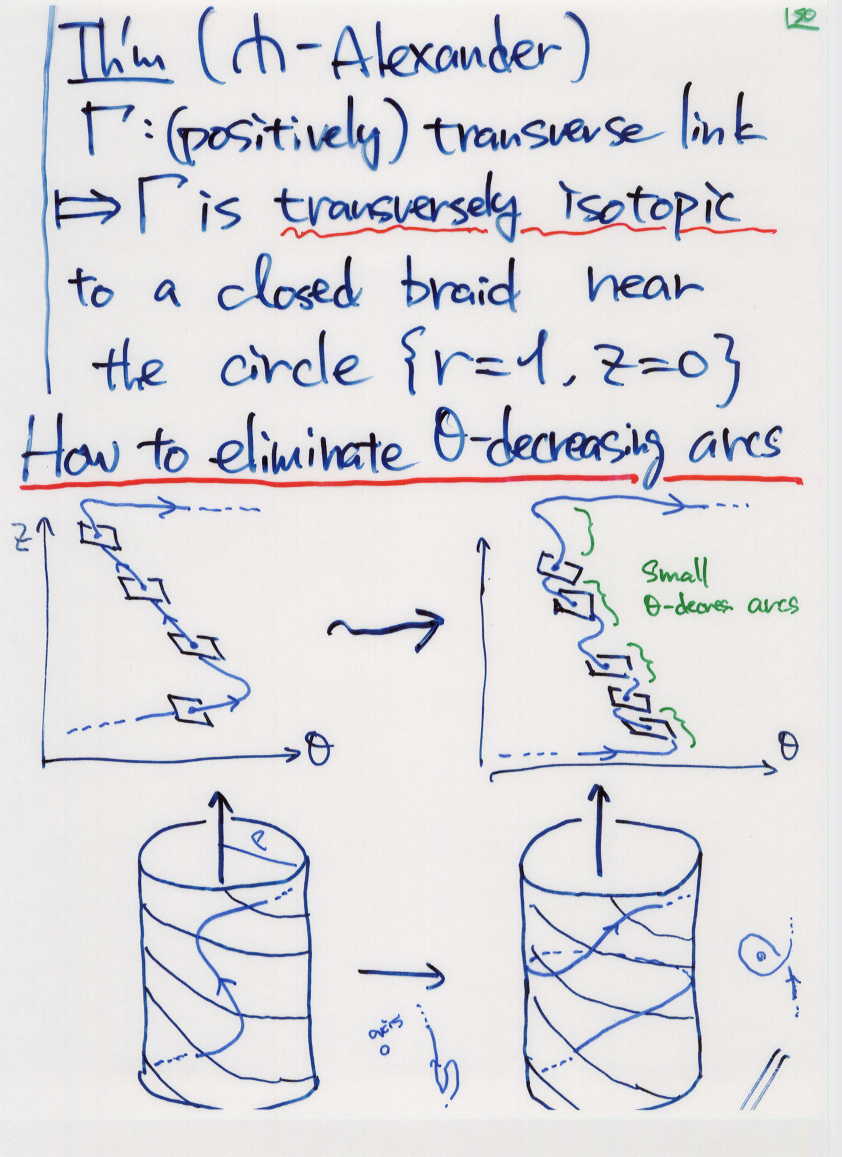 50
Th'm (⋔-Alexander)
Γ : (positively) transverse link
⟹ Γ is transversely isotopic
to a closed braid near
the circle {r=1, z=0}
How to eliminate θ-decreasing arcs
z
θ
small
θ-decres arcs
θ
axis